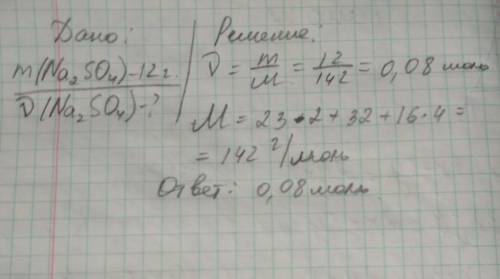 Дано:
m(Na₂SO₄)-12г.
ν(Na₂SO₄)-?
Решение:
ν = m/M = 12/142 = 0,08 моль
M = 23·2+32+16·4=
= 142 г/моль
Ответ: 0,08 моль